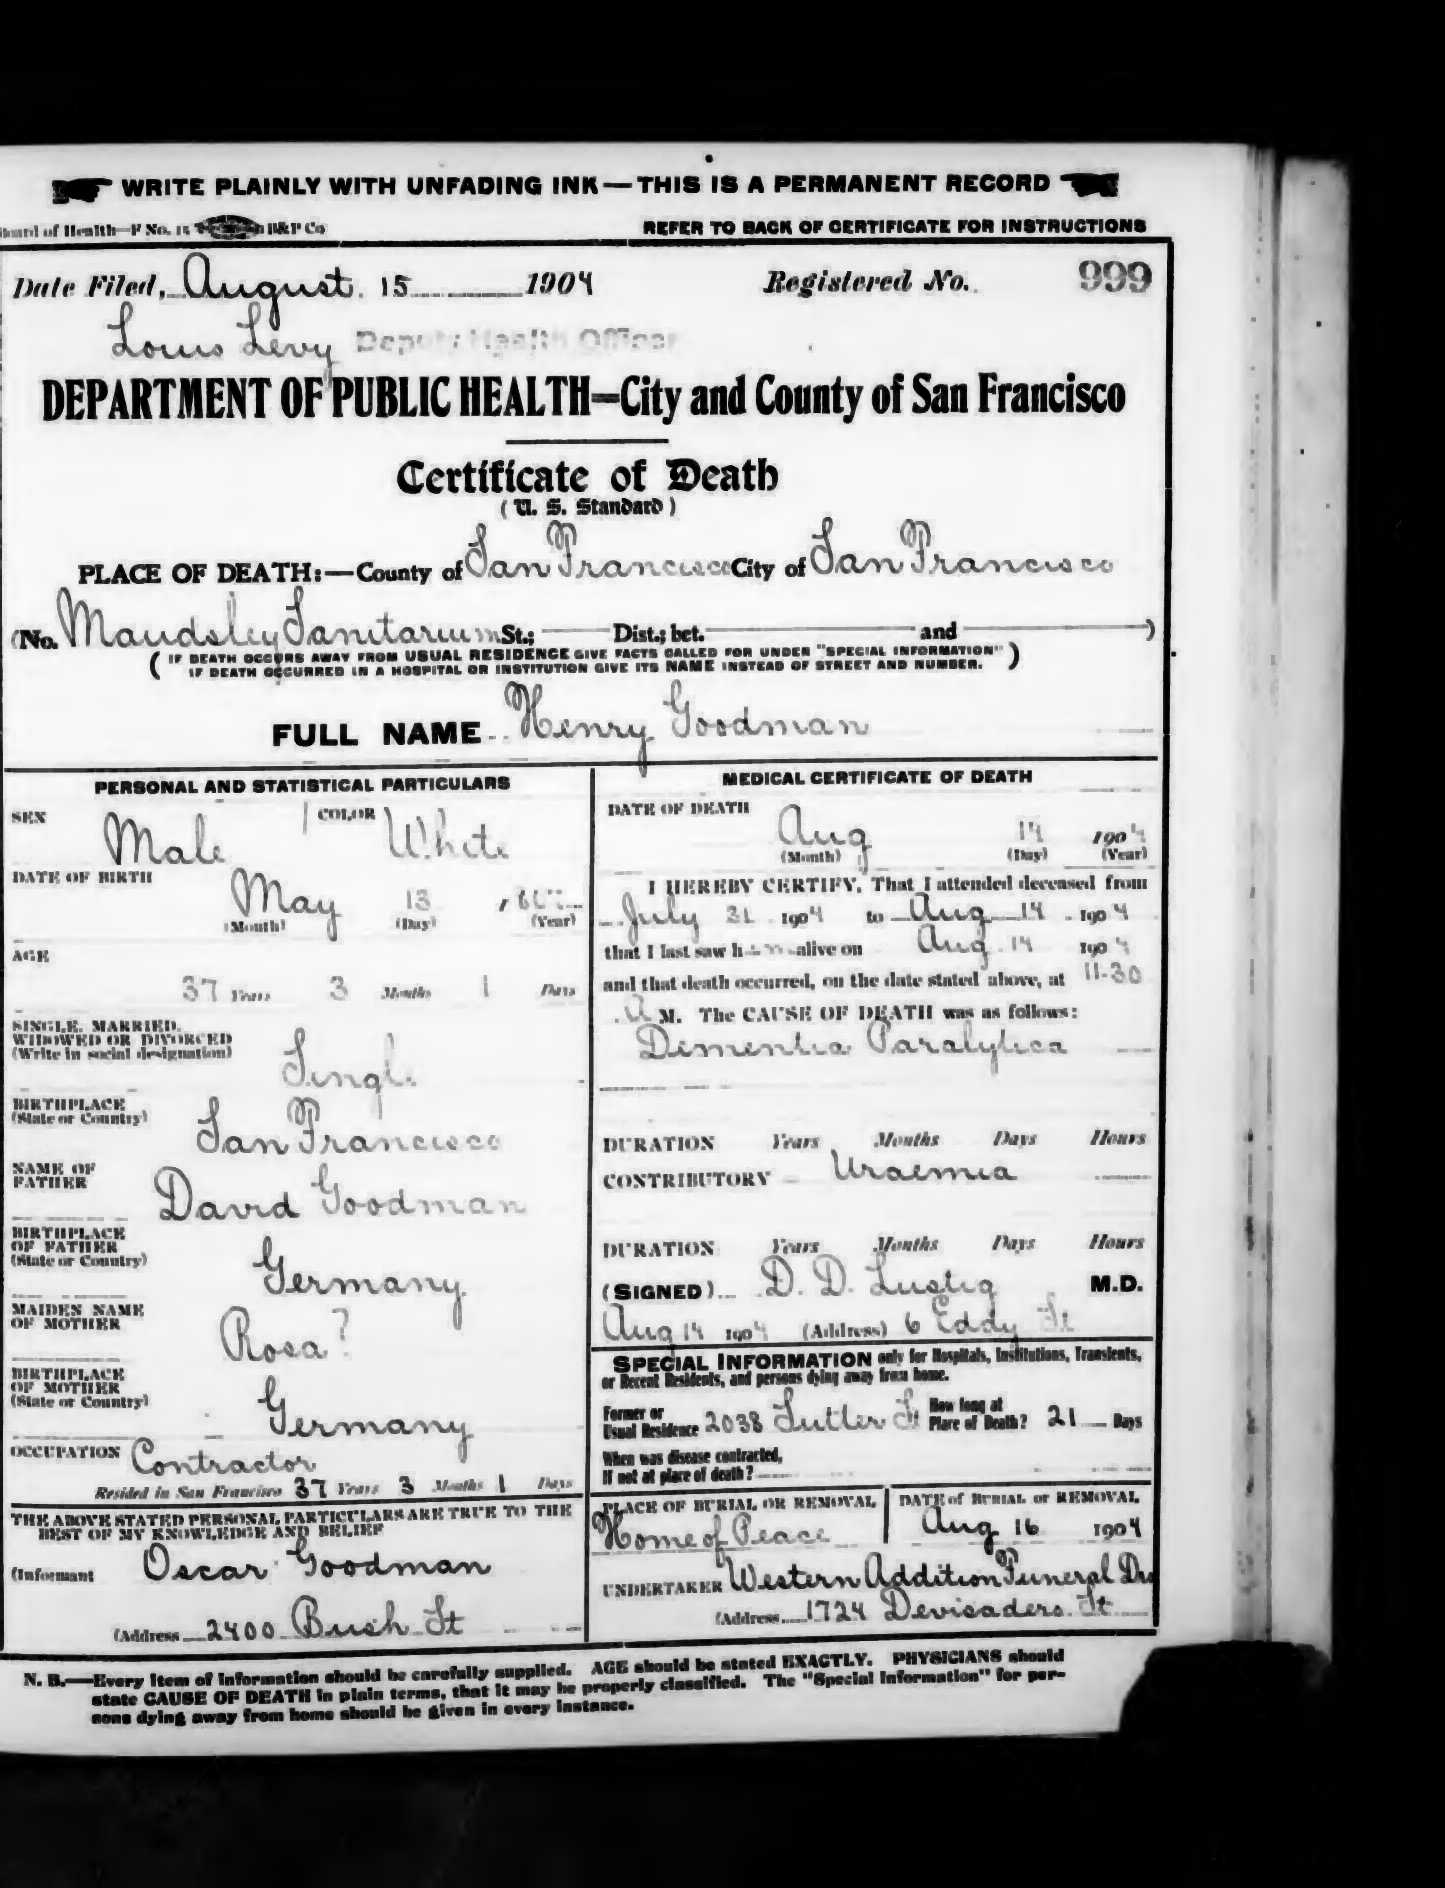 WRITE PLAINLY WITH UNFADING INK—THIS IS A PERMANENT RECORD
Board of Health—F No. 15 B&P Co
REFER TO BACK OF CERTIFICATE FOR INSTRUCTIONS
Date Filed, August 15 1904 Registered No. 999
Louis Levy Deputy Health Officer
DEPARTMENT OF PUBLIC HEALTH=City and County of San Francisco
Certificate of Death
(U. S. Standard)
PLACE OF DEATH:—County of San Francisco City of San Francisco
(No. Maudsley Sanitarium St.; Dist.; bet. and )
(IF DEATH OCCURS AWAY FROM USUAL RESIDENCE GIVE FACTS CALLED FOR UNDER "SPECIAL INFORMATION"
IF DEATH OCCURRED IN A HOSPITAL OR INSTITUTION GIVE ITS NAME INSTEAD OF STREET AND NUMBER.)
FULL NAME Henry Goodman
PERSONAL AND STATISTICAL PARTICULARS
SEX Male COLOR White
DATE OF BIRTH May 13
(Month) (Day) (Year)
AGE
37 Years 3 Months 1 Days
SINGLE, MARRIED,
WIDOWED OR DIVORCED
(Write in social designation) Single
BIRTHPLACE
(State or Country) San Francisco
NAME OF
FATHER David Goodman
BIRTHPLACE
OF FATHER
(State or Country) Germany
MAIDEN NAME
OF MOTHER Rosa ?
BIRTHPLACE
OF MOTHER
(State or Country) Germany
OCCUPATION Contractor
Resided in San Francisco 37 Years 3 Months 1 Days
THE ABOVE STATED PERSONAL PARTICULARS ARE TRUE TO THE
BEST OF MY KNOWLEDGE AND BELIEF
(Informant Oscar Goodman
(Address 2400 Bush St
MEDICAL CERTIFICATE OF DEATH
DATE OF DEATH
Aug 14 1904
(Month) (Day) (Year)
I HEREBY CERTIFY, That I attended deceased from
July 31 1904 to Aug 14 1904
that I last saw him alive on Aug 14 1904
and that death occurred, on the date stated above, at 11-30
A M. The CAUSE OF DEATH was as follows:
Dementia Paralytica
DURATION Years Months Days Hours
CONTRIBUTORY Uraemia
DURATION Years Months Days Hours
(SIGNED) D. D. Lustig M.D.
Aug 14 1904 (Address) 6 Eddy St
SPECIAL INFORMATION only for Hospitals, Institutions, Transients,
or Recent Residents, and persons dying away from home.
Former or
Usual Residence 2038 Sutter St How long at
Place of Death? 21 Days
When was disease contracted,
If not at place of death?
PLACE OF BURIAL OR REMOVAL DATE of BURIAL or REMOVAL
Home of Peace Aug 16 1904
UNDERTAKER Western Addition Funeral
(Address 1724 Devisadero St
N. B.—Every item of information should be carefully supplied. AGE should be stated EXACTLY. PHYSICIANS should
state CAUSE OF DEATH in plain terms, that it may be properly classified. The "Special Information" for per-
sons dying away from home should be given in every instance.